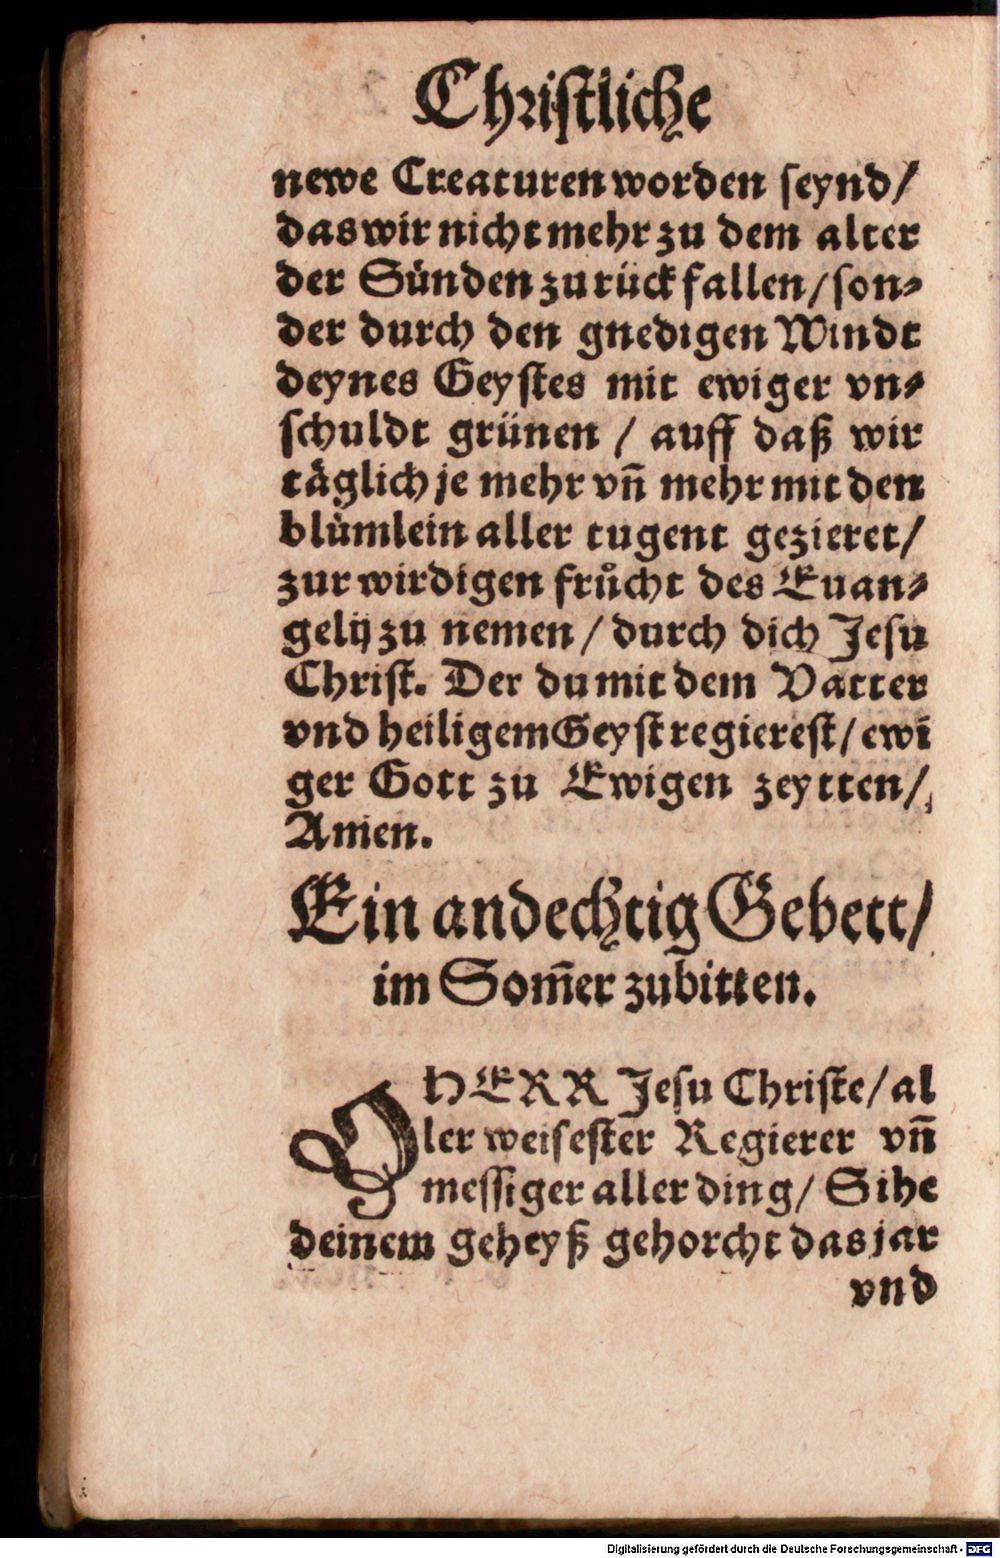 Christliche
newe Creaturen worden seynd/
das wir nicht mehr zu dem alter
der Sünden zu rück fallen/son⸗
der durch den gnedigen Windt
deynes Geystes mit ewiger vn⸗
schuldt grünen / auff daß wir
täglich je mehr vñ mehr mit den
blůmlein aller tugent gezieret/
zur wirdigen frůcht des Euan⸗
gelij zu nemen / durch dich Jesu
Christ. Der du mit dem Vatter
vnd heiligem Geyst regierest/ewi
ger Gott zu Ewigen zeytten/
Amen.
Ein andechtig Gebett/
im Som̃er zubitten.
O HERR Jesu Christe/al
ler weisester Regierer vñ
messiger aller ding/ Sihe
deinem geheyß gehorcht das jar
vnd
Digitalisierung gefördert durch die Deutsche Forschungsgemeinschaft - DFG